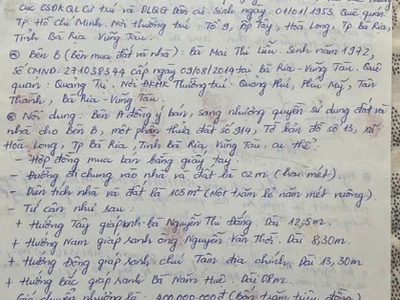 cục CSĐKQL Cư trú và DLQG Dân cư. Sinh ngày: 01/01/1953. Quê quán:
TP Hồ Chí Minh. Nơi thường trú: Tổ 9, Ấp Tây, Hòa Long, Tp Bà Rịa,
Tỉnh Bà Rịa Vũng Tàu.
Bên B (bên mua đất và nhà): Bà Mai Thị Liên. Sinh năm 1972,
Số CMND: 271038344 cấp ngày 09/08/2014 tại Bà Rịa - Vũng Tàu. Quê
quán: Quảng Trị. Nơi ĐKHK Thường trú: Quảng Phú, Phú Mỹ, Tân
Thành, Bà Rịa - Vũng Tàu.
Nội dung: Bên A đồng ý bán, sang nhượng quyền sử dụng đất và
nhà cho Bên B, một phần thửa đất số 914, Tờ bản đồ số 13, xã
Hòa Long, Tp Bà Rịa, Tỉnh Bà Rịa Vũng Tàu, cụ thể:
- Hợp đồng mua bán bằng giấy tay.
- Đường đi chung vào nhà và đất là 02m (hai mét).
- Diện tích nhà và đất là 105m² (Một trăm lẻ năm mét vuông).
- Tứ cận như sau:
+ Hướng Tây giáp ranh bà Nguyễn Thị Đấng. Dài 12,5m.
+ Hướng Nam giáp ranh ông Nguyễn Văn Thới. Dài 8,30m.
+ Hướng Đông giáp ranh chú Tám địa chính. Dài 13,30m
+ Hướng Bắc giáp ranh Bà Năm Huê. Dài 08m.
Giá chuyển nhượng là: 400.000.000đ (Bốn trăm triệu đồng)